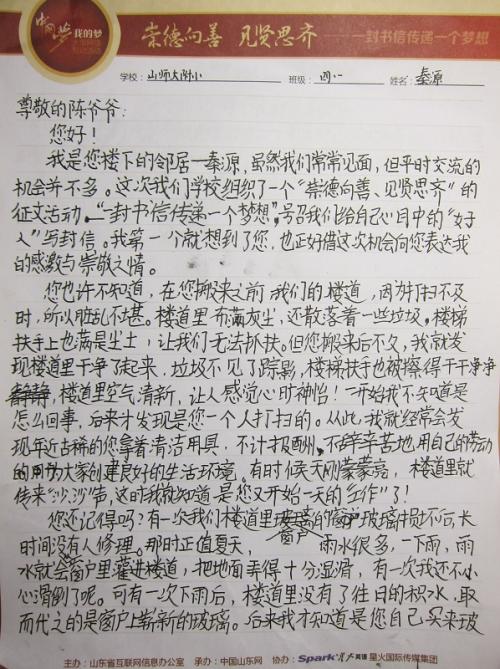 中国梦 我的梦
崇德向善 见贤思齐 —— 一封书信传递一个梦想
学校：山师大附小 班级：四.1 姓名：秦源
尊敬的陈爷爷：
您好！
我是您楼下的邻居—秦源，虽然我们常常见面，但平时交流的
机会并不多。这次我们学校组织了一个“崇德向善、见贤思齐”的
征文活动。“一封书信传递一个梦想”，号召我们给自己心目中的“好
人”写封信。我第一个就想到了您，也正好借这次机会向您表达我
的感激与崇敬之情。
您也许不知道，在您搬来之前我们的楼道，因为打扫不及
时，所以脏乱不堪。楼道里布满灰尘，还散落着一些垃圾，楼梯
扶手上也满是尘土，让我们无法抓扶。但您搬来后不久，我就发
现楼道里干净了起来，垃圾不见了踪影，楼梯扶手也被擦得干干净净
楼道里空气清新，让人感觉心旷神怡！一开始我不知道是
怎么回事，后来才发现是您一个人打扫的。从此，我就经常会发
现年近古稀的您拿着清洁用具，不计报酬，不辞辛苦地，用自己的劳动
为大家创建良好的生活环境。有时候天刚蒙蒙亮，楼道里就
传来“沙沙”声，这时我就知道是您又开始一天的“工作”了！
您还记得吗？有一次我们楼道里窗户玻璃坏后，长
时间没有人修理。那时正值夏天，雨水很多，一下雨，雨
水就会窗户里灌进楼道，把地面弄得十分湿滑，有一次我还不小
心滑倒了呢。可有一次下雨后，楼道里没有了往日的积水，取
而代之的是窗户上崭新的玻璃。后来我才知道是您自己买来玻
主办：山东省互联网信息办公室 承办：中国山东网 协办：Spark 星火英语 星火国际传媒集团